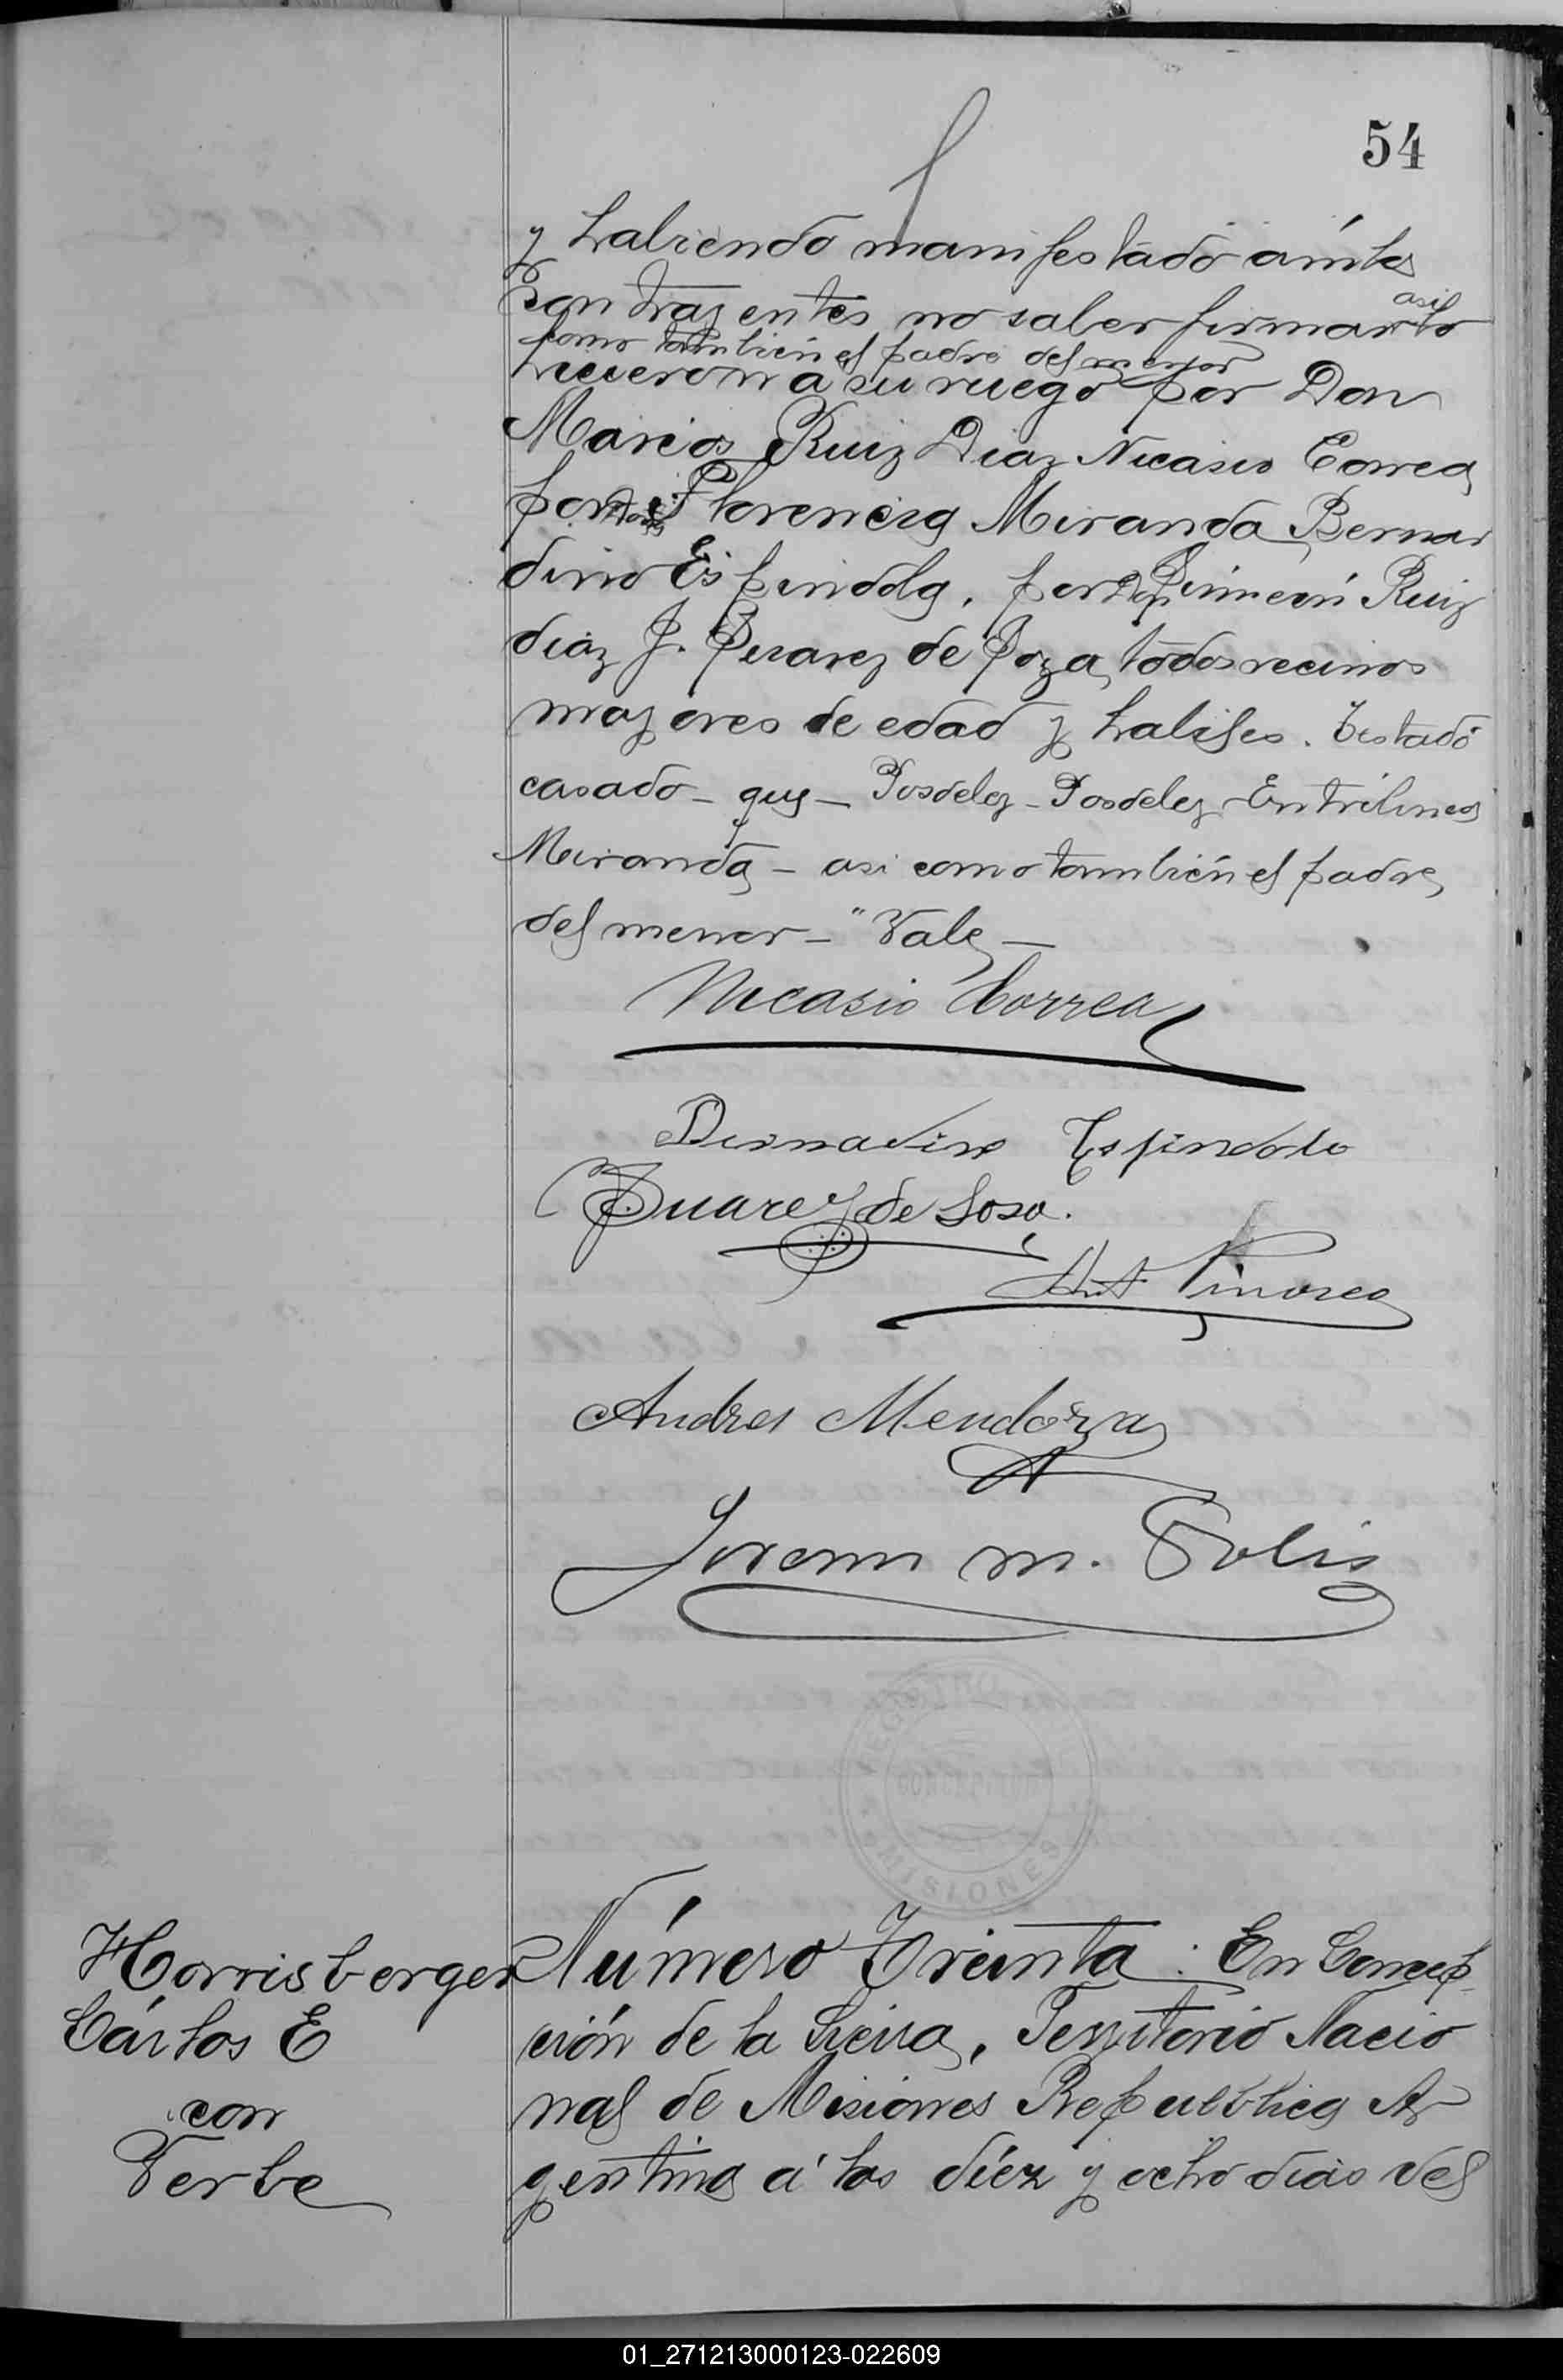 54
y habiendo manifestado ámbos
contrayentes no saber firmar lo asi
como tambien el padre del menor
hicieron a su ruego por Don
Marcos Ruiz Diaz Nicasio Correa
por Doña Florencia Miranda Bernar
dino Espindola, por Don Simeón Ruiz
diaz J. Suarez de Soza, todos vecinos
mayores de edad y habiles. Testado
casado - que - Posdeley - Posdeley - Entrelineas
Miranda - asi como también el padre
del menor - " Vale -
Nicasio Correa
Bernadino Espindola
J Suarez de Sosa.
Andres Mendoza
Juan M. Solis
REGISTRO
CONCEPCION
MISIONES
Horrisberger
Cárlos E
con
Verbe
Número Treinta : En Concep
ción de la Sierra, Territorio Nacio
nal de Misiones Republica Ar
gentina á los díez y ocho dias del
01_271213000123-022609